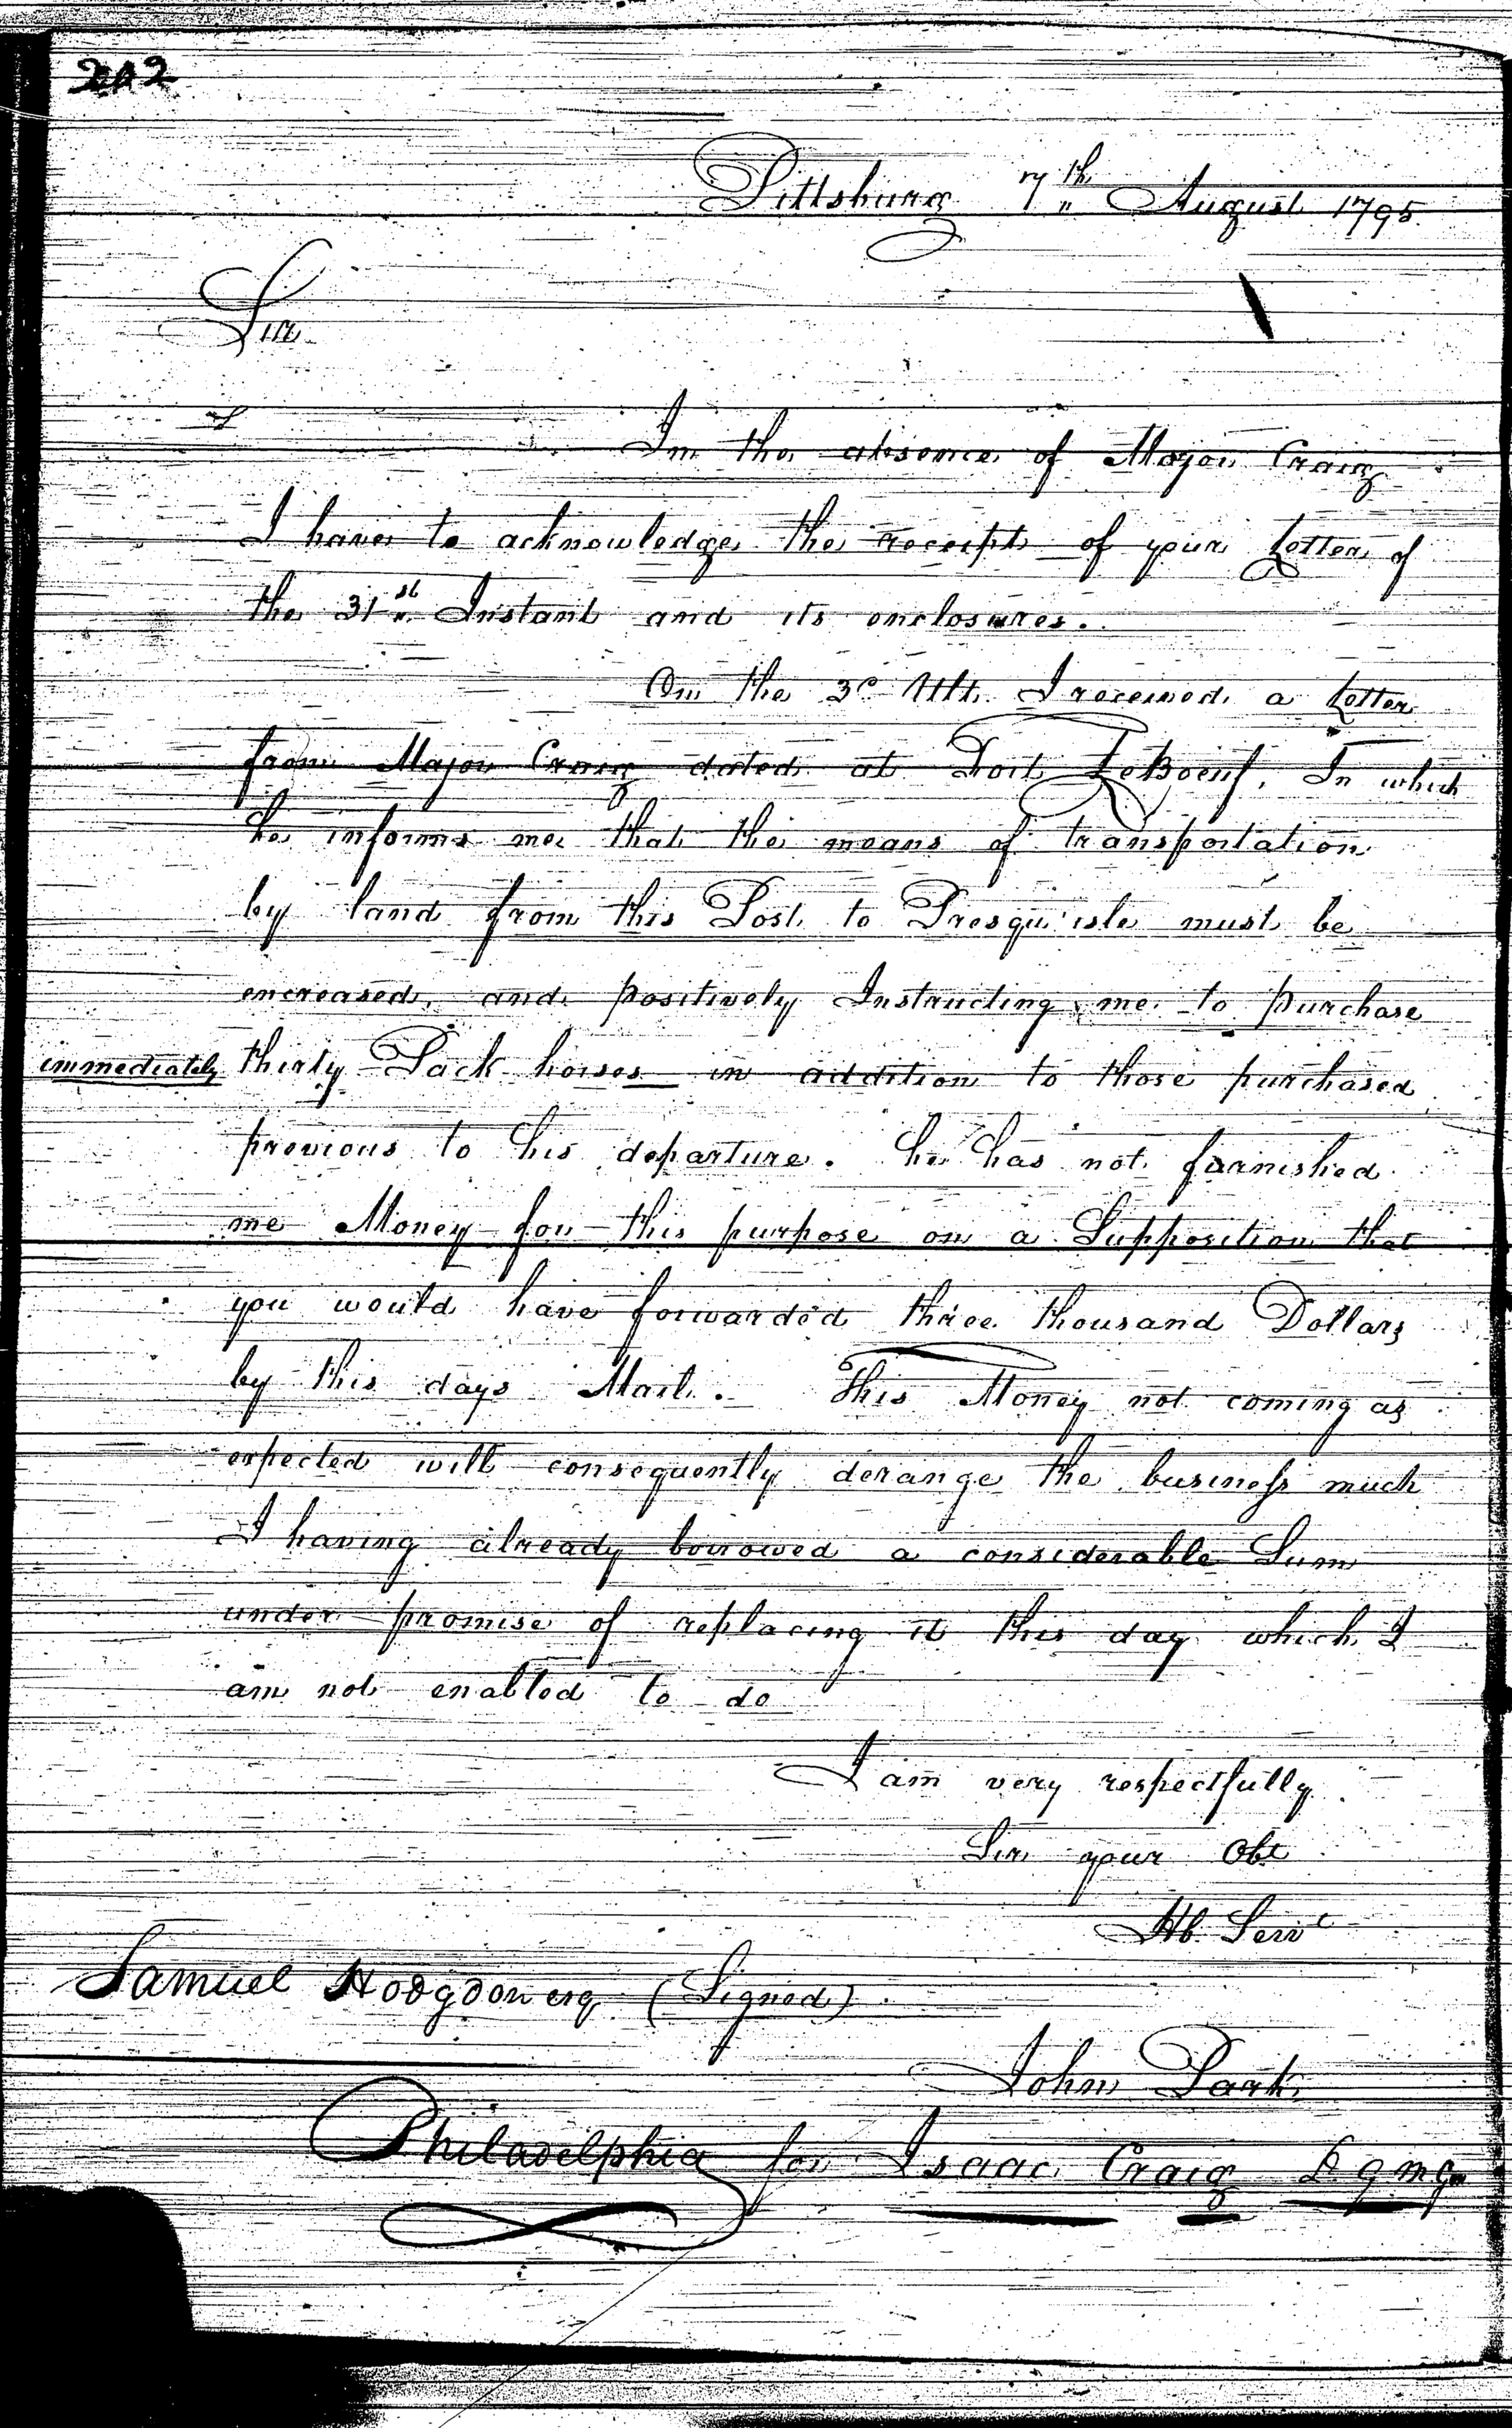 202
Pittsburg 7th August 1795
Sir
In the absence of Major Craig
I have to acknowledge the receipt of your Letter of
the 31st Instant and its enclosures.
On the 30 Ultt. I received a Letter
from Major Craig dated at Fort LeBoeuf, In which
he informs me that the means of transportation
by land from this Post to Presqu'isle must be
encreased, and positively Instructing me to purchase
immediately thirty Pack horses in addition to those purchased
previous to his departure. he has not furnished
me Money for this purpose on a Supposition that
you would have forwarded three thousand Dollars
by this days Mail. This Money not coming as
expected will consequently derange the business much
I having already borrowed a considerable Sum
under promise of replacing it this day which I
am not enabled to do
I am very respectfully
Sir your Obt
Hb. Servt
Samuel Hodgdon esq. (Signed)
John Park
Philadelphia for Isaac Craig D Q M G